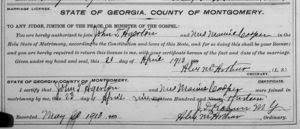 MARRIAGE LICENSE.
STATE OF GEORGIA, COUNTY OF MONTGOMERY.
TO ANY JUDGE, JUSTICE OF THE PEACE OR MINISTER OF THE GOSPEL:
You are hereby authorized to join John and Mrs Cooper in the
Holy State of Matrimony, according to the Constitution and laws of this State, and for so doing this shall be your license.
And you are hereby required to return this license to me, with your certificate hereon of the fact and date of the marriage.
Given under my hand and seal, this 21 day of April 1913
Alex McArthur (L. S.)
CERTIFICATE.
STATE OF GEORGIA, COUNTY OF MONTGOMERY.
I certify that John and Mrs Cooper were joined in
matrimony by me, this day of April Nineteen Hundred and
Recorded May 1913
Alex McArthur